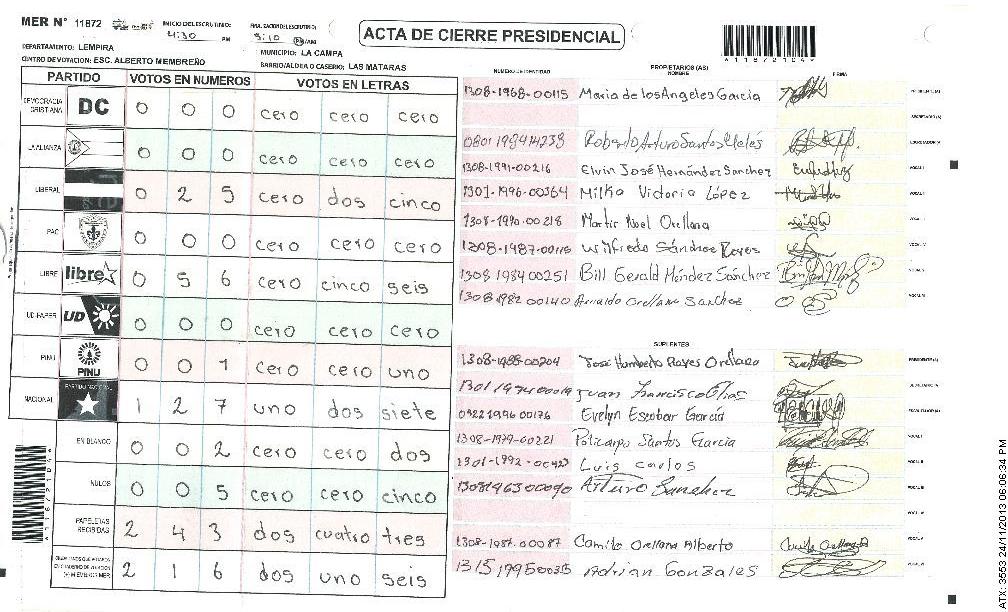 MER N° 11872
INICIO DEL ESCRUTINIO: 4:30 PM
ACTA DE CIERRE PRESIDENCIAL
*11872104*
DEPARTAMENTO: LEMPIRA
MUNICIPIO: LA CAMPA
CENTRO DE VOTACION: ESC. ALBERTO MEMBREÑO
BARRIO/ALDEA O CASERIO: LAS MATARAS
PARTIDO VOTOS EN NUMEROS VOTOS EN LETRAS
DEMOCRACIA CRISTIANA DC 0 0 0 cero cero cero
LA ALIANZA 0 0 0 cero cero cero
LIBERAL 0 2 5 cero dos cinco
PAC 0 0 0 cero cero cero
LIBRE libre 0 5 6 cero cinco seis
UD-FAPER UD 0 0 0 cero cero cero
PINU PINU 0 0 1 cero cero uno
NACIONAL PARTIDO NACIONAL 1 2 7 uno dos siete
EN BLANCO 0 0 2 cero cero dos
NULOS 0 0 5 cero cero cinco
PAPELETAS RECIBIDAS 2 4 3 dos cuatro tres
2 1 6 dos uno seis
PROPIETARIOS (AS)
NUMERO DE IDENTIDAD NOMBRE FIRMA
1308-1968-00115 Maria de los Angeles Garcia PRESIDENTE (A)
SECRETARIO (A)
Roberto Arturo Santos ESCRUTADOR/A
1308-1991-00216 Elvin José Hernández Sanchez VOCAL I
1301-1996-00364 Milka Victoria López
1308-1990-00218 Martir Noel Orellana
1308-1987-00115 Wilfredo Sánchez Reyes VOCAL IV
1308 1984 00251 Bill Gerald Méndez Sánchez VOCAL V
1308 1982 00140 Arnaldo Orellana Sanchez VOCAL VI
SUPLENTES
1308-1985-00204 Jose Humberto Reyes Orellana PRESIDENTE (A)
Juan Francisco SECRETARIO/A
0422 1996 00176 Evelyn Escobar García ESCRUTADOR (A)
1308-1979-00221 Policarpo Santos Garcia VOCAL I
1301-1992-00423 Luis carlos VOCAL II
1308196300090 Arturo Sanchez VOCAL III
VOCAL IV
1308-1987-00087 Camilo Orellana Alberto VOCAL V
Adrian Gonzales VOCAL VI
*11872104*
ATX: 3553 24/11/2013 06:06:34 PM